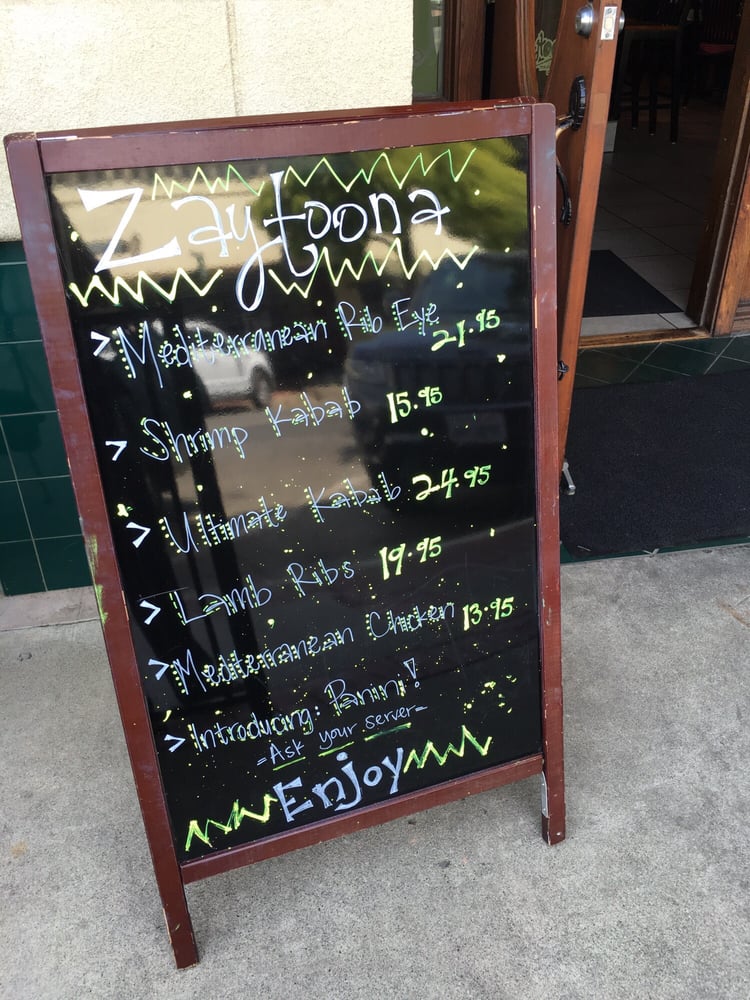 Zaytoona
> Mediterranean Rib Eye 21.95
> Shrimp Kabab 15.95
> Ultimate Kabab 24.95
> Lamb Ribs 19.95
> Mediterranean Chicken 13.95
> Introducing: Panini!
= Ask your server =
Enjoy